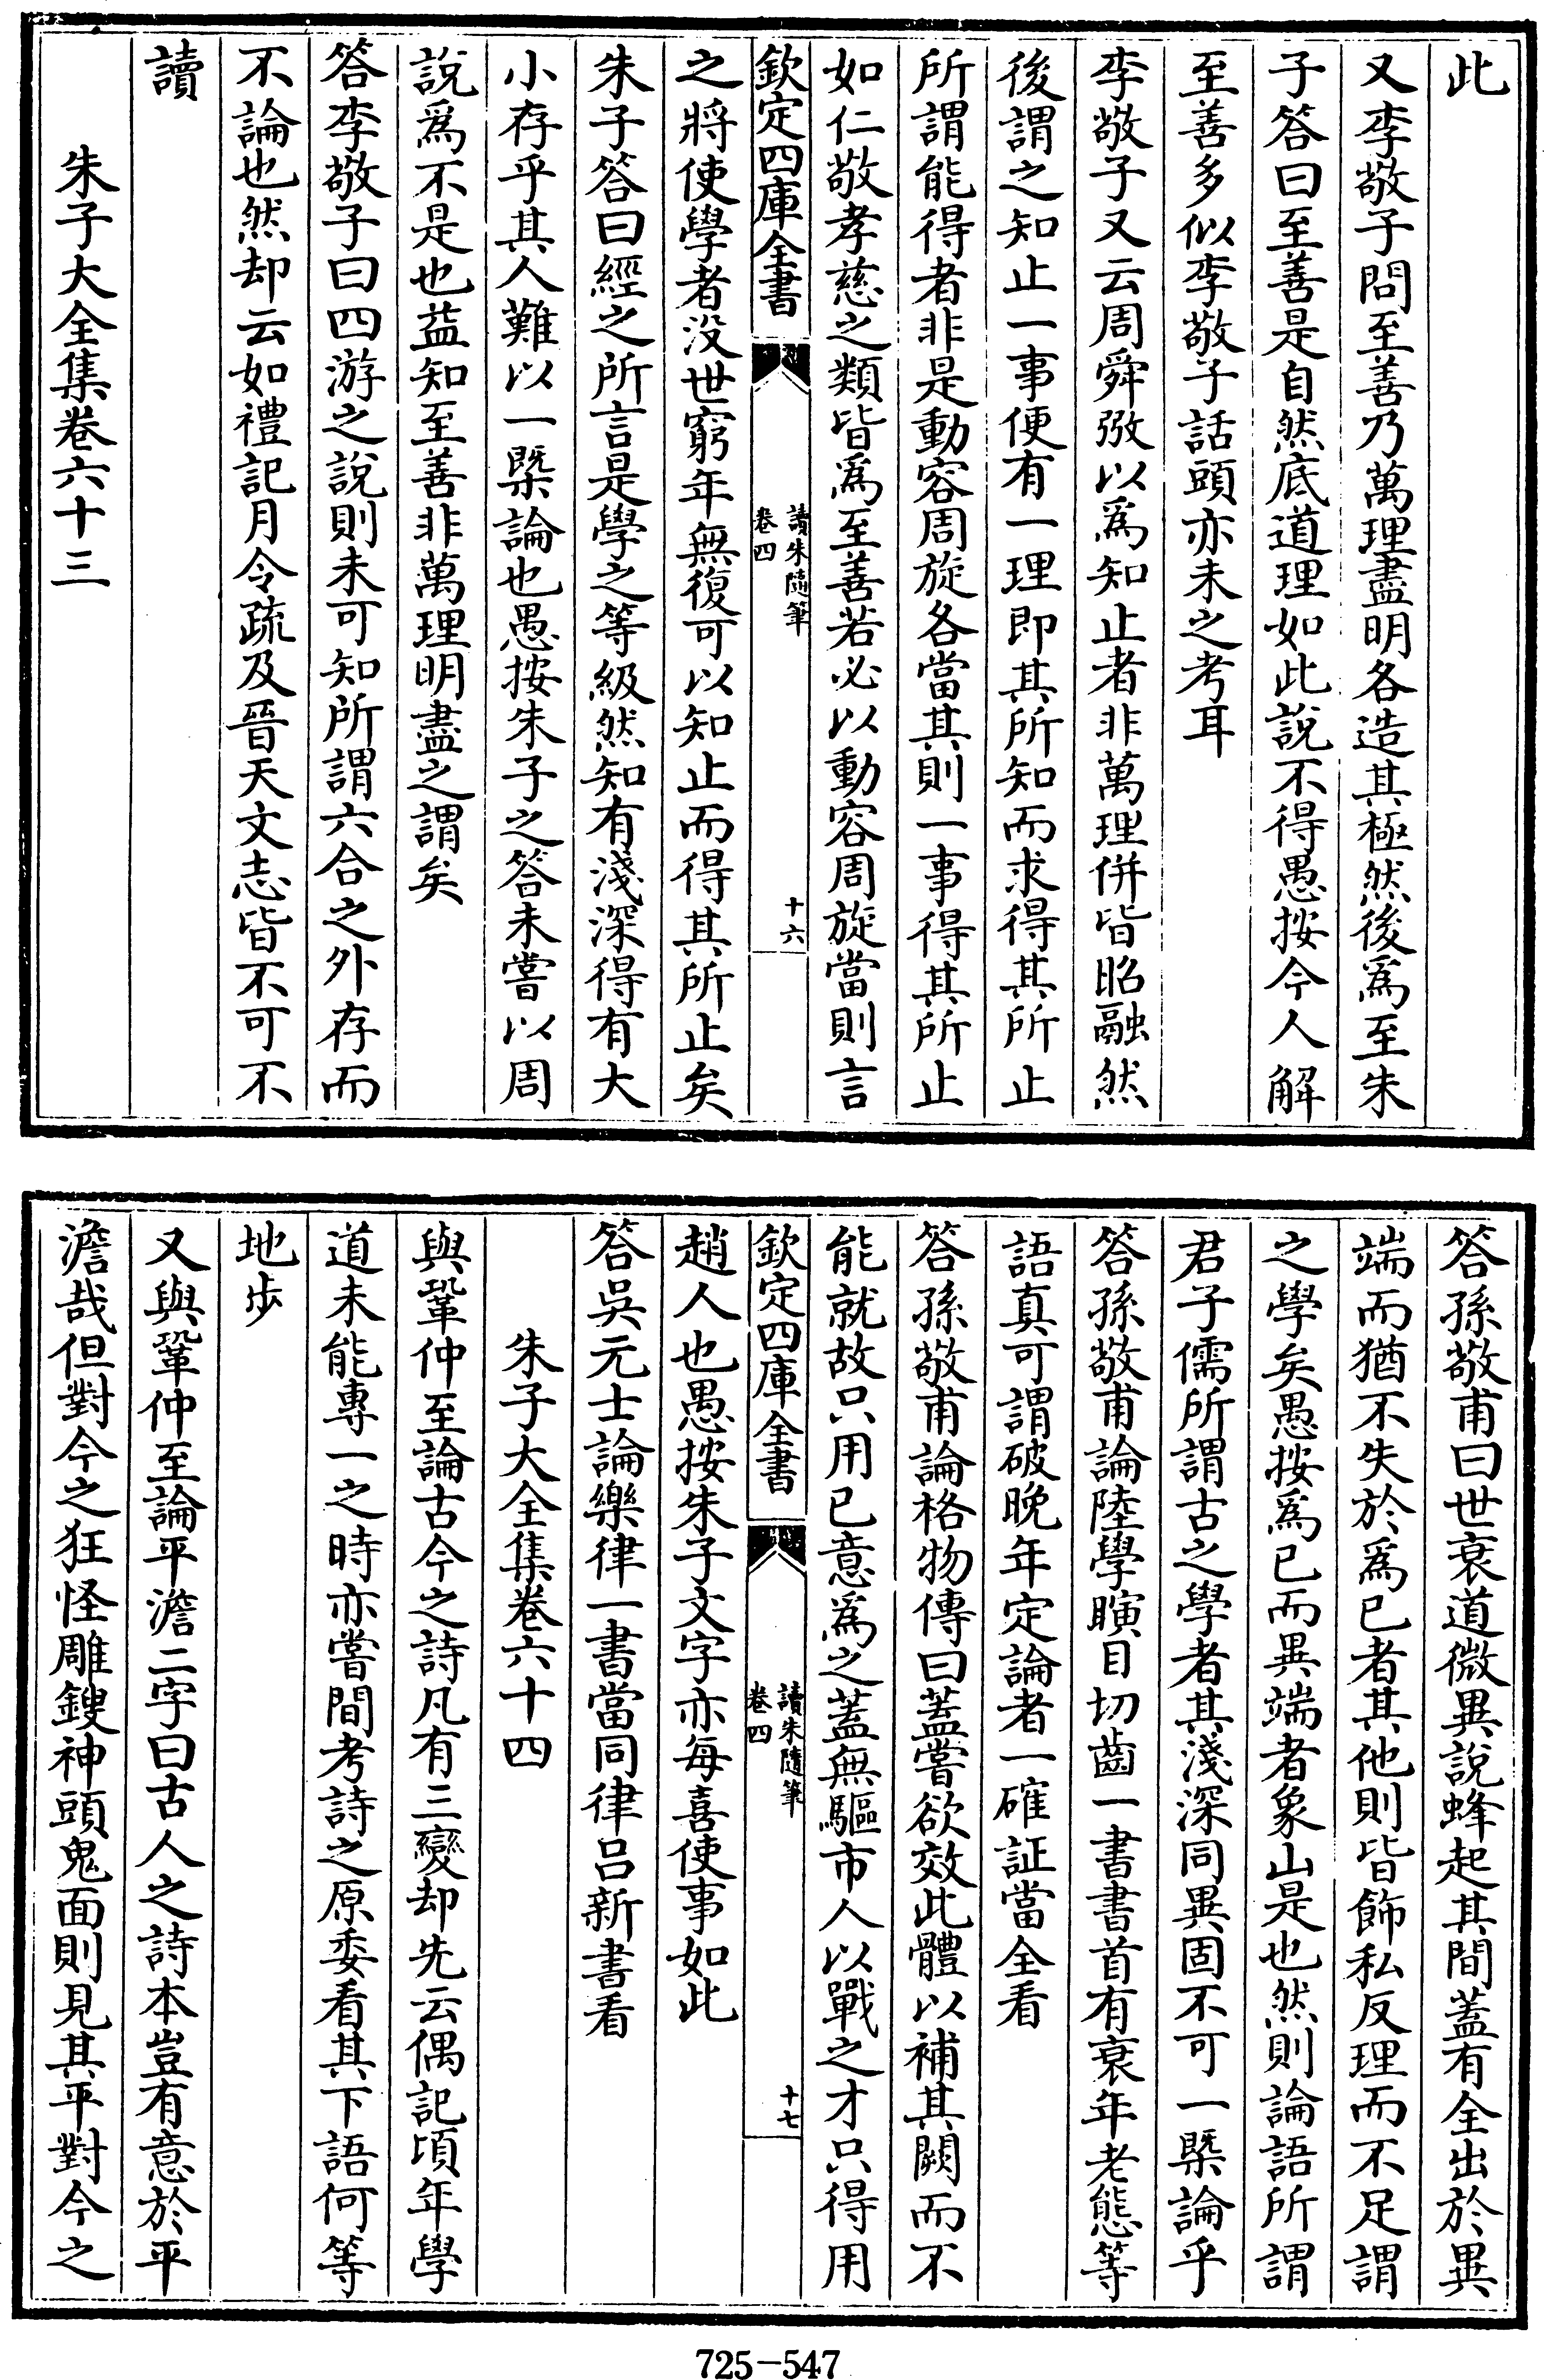 此
又李敬子問至善乃萬理盡明各造其極然後爲至朱
子答曰至善是自然底道理如此說不得愚按今人解
至善多似李敬子話頭亦未之考耳
李敬子又云周舜弼以爲知止者非萬理併皆昭融然
後謂之知止一事便有一理即其所知而求得其所止
所謂能得者非是動容周旋各當其則一事得其所止
如仁敬孝慈之類皆爲至善若必以動容周旋當則言
欽定四庫全書
讀朱隨筆
卷四
十六
之將使學者没世窮年無復可以知止而得其所止矣
朱子答曰經之所言是學之等級然知有淺深得有大
小存乎其人難以一槩論也愚按朱子之答未嘗以周
說爲不是也益知至善非萬理明盡之謂矣
答李敬子曰四游之說則未可知所謂六合之外存而
不論也然却云如禮記月令疏及晉天文志皆不可不
讀
朱子大全集卷六十三
答孫敬甫曰世衰道微異說蜂起其間蓋有全出於異
端而猶不失於爲己者其他則皆飾私反理而不足謂
之學矣愚按爲己而異端者象山是也然則論語所謂
君子儒所謂古之學者其淺深同異固不可一槩論乎
答孫敬甫論陸學瞋目切齒一書書首有衰年老態等
語真可謂破晚年定論者一確証當全看
答孫敬甫論格物傳曰蓋嘗欲效此體以補其闕而不
能就故只用已意爲之蓋無驅市人以戰之才只得用
欽定四庫全書
讀朱隨筆
卷四
十七
趙人也愚按朱子文字亦每喜使事如此
答吳元士論樂律一書當同律呂新書看
朱子大全集卷六十四
與鞏仲至論古今之詩凡有三變却先云偶記頃年學
道未能專一之時亦嘗間考詩之原委看其下語何等
地步
又與鞏仲至論平澹二字曰古人之詩本豈有意於平
澹哉但對今之狂怪雕鎪神頭鬼面則見其平對今之
725-547